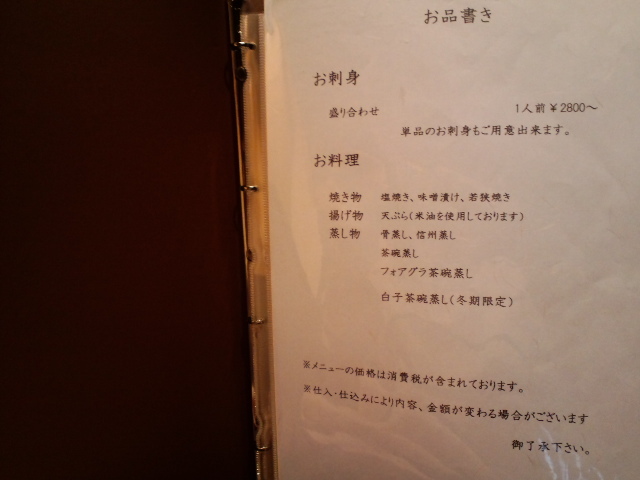 お品書き
お刺身
盛り合わせ 1人前￥2800～
単品のお刺身もご用意出来ます。
お料理
焼き物 塩焼き、味噌漬け、若狭焼き
揚げ物 天ぷら(米油を使用しております)
蒸し物 骨蒸し、信州蒸し
茶碗蒸し
フォアグラ茶碗蒸し
白子茶碗蒸し(冬期限定)
※メニューの価格は消費税が含まれております。
※仕入・仕込みにより内容、金額が変わる場合がございます
御了承下さい。